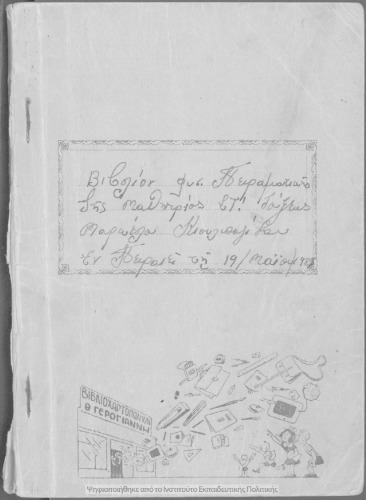 Βιβλίον φυσ. Πειραματικής
Της μαθητρίας ΣΤ! Τάξεως
Μαρούλα
Εν Πειραιεί τη 19/Μαΐου
ΒΙΒΛΙΟΧΑΡΤΟΠΩΛΕΙΟΝ
Θ ΓΕΡΟΓΙΑΝΝΗ
Ψηφιοποιήθηκε από το Ινστιτούτο Εκπαιδευτικής Πολιτικής